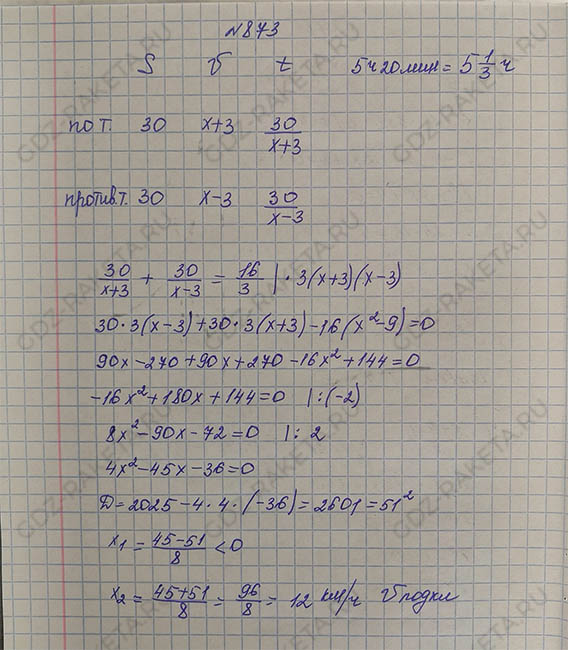 №873
S V t 5ч20мин = 5 1/3 ч
по т. 30 x+3 30/(x+3)
против.т. 30 x-3 30/(x-3)
30/(x+3) + 30/(x-3) = 16/3 | · 3(x+3)(x-3)
30·3(x-3)+30·3(x+3)-16(x²-9)=0
90x-270+90x+270-16x²+144=0
-16x²+180x+144=0 |:(-2)
8x²-90x-72=0 |: 2
4x²-45x-36=0
D=2025-4·4·(-36)=2601=51²
x₁ = (45-51)/8 < 0
x₂ = (45+51)/8 = 96/8 = 12 км/ч V лодки
GDZ-RAKETA.RU